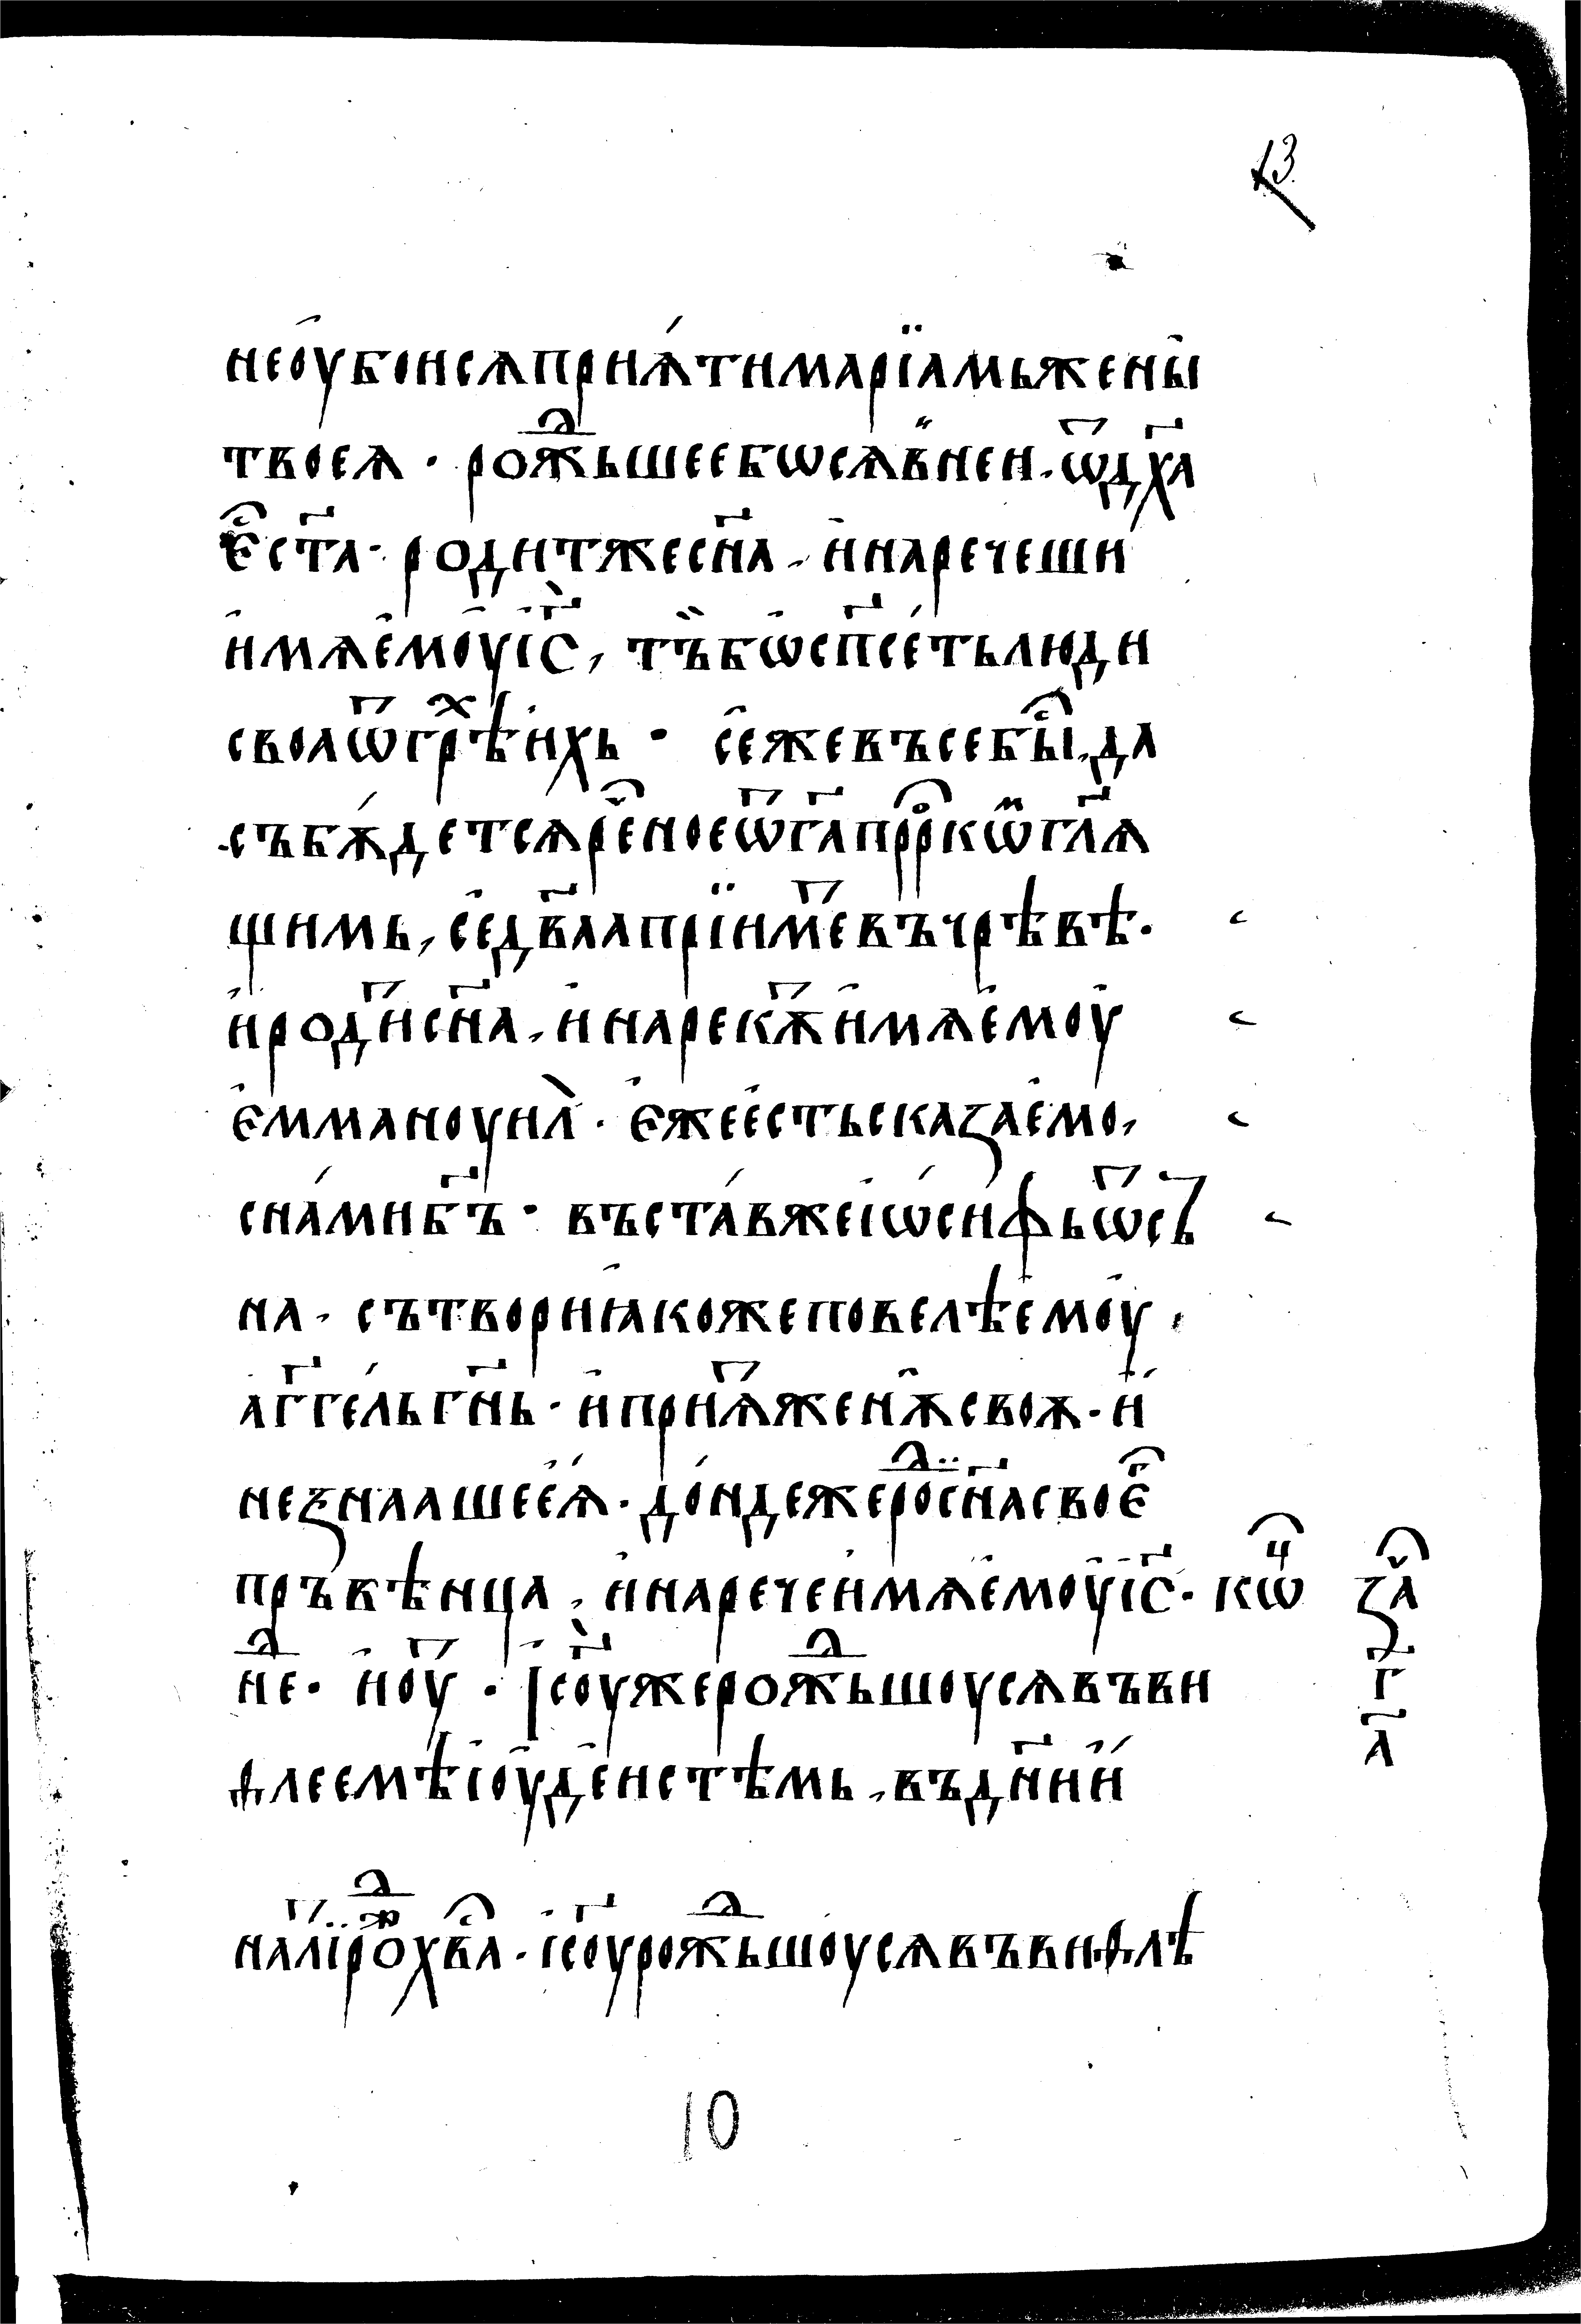 13
не ѹбоисѧ прїѧ́ти марїамь жены̀
твоеѧ · рожⷣьшее бѡ сѧ в̾ неи · ѿ дх҃а
є҆ⷭ ст҃а · родит же сн҃а , и҆ наречеши
и҆мѧ е҆мѹ і҆с҃ , тъ бѡ сп҃сеть люди
своа ѿ грⷯѣихь · се же въсе бы́ⷭ , да
събѫ́детсѧ рече́ное ѿ г҃а прⷪ҇ркѡⷨ гл҃ѧ
щимь , се дв҃аа прїимеⷮ въ чрѣвѣ ·
и҆ родиⷮ сн҃а , и҆ нарекѫⷮ и҆мѧ е҆мѹ
є҆мманѹиⷧ҇ · є҆же е҆сть сказаемо ,
с на́ми бг҃ъ · въста́в же іѡсифь ѿ съ
на , сътвори ꙗкоже повелѣ е҆мѹ ,
аг҃гель гн҃ь · и҆ прїѧⷮ женѫ своѫ · и҆
не знааше еѧ̀ · до́ндеже роⷣ сн҃а своеⷢ҇
пръвѣнца , и҆ нарече и҆мѧ е҆мѹ і҆с҃ · кѡⷰ҇
неⷣ · и҆ ѹⷮ · Іс҃ѹ же рожⷣьшѹсѧ въ ви
ѳлеемѣ і҆ѹдеистѣмь , въ дн҃и и҆
заⷱ҇
г҃
а҃
на лїⷮ роⷤⷣ хв҃а · іс҃ѹ рожⷣьшѹсѧ въ виѳлѣ
10